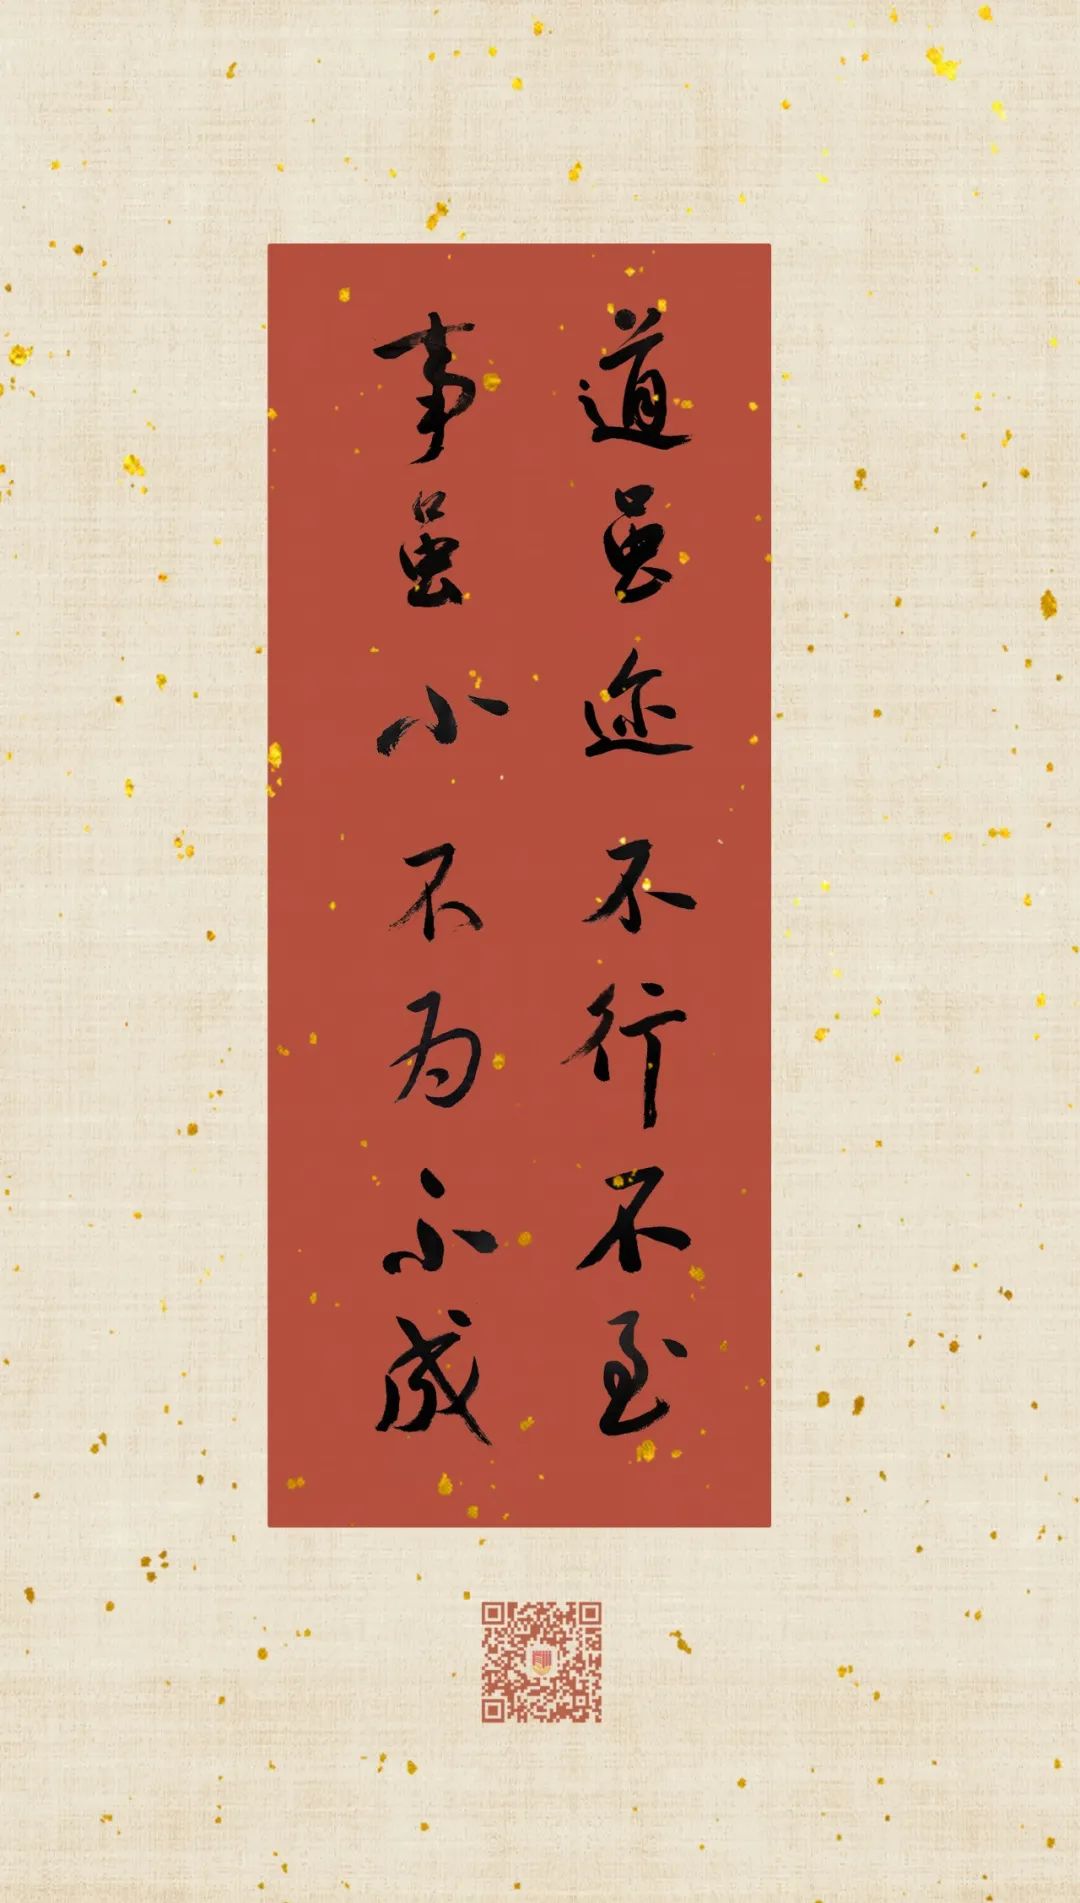 道虽迩不行不至
事虽小不为不成